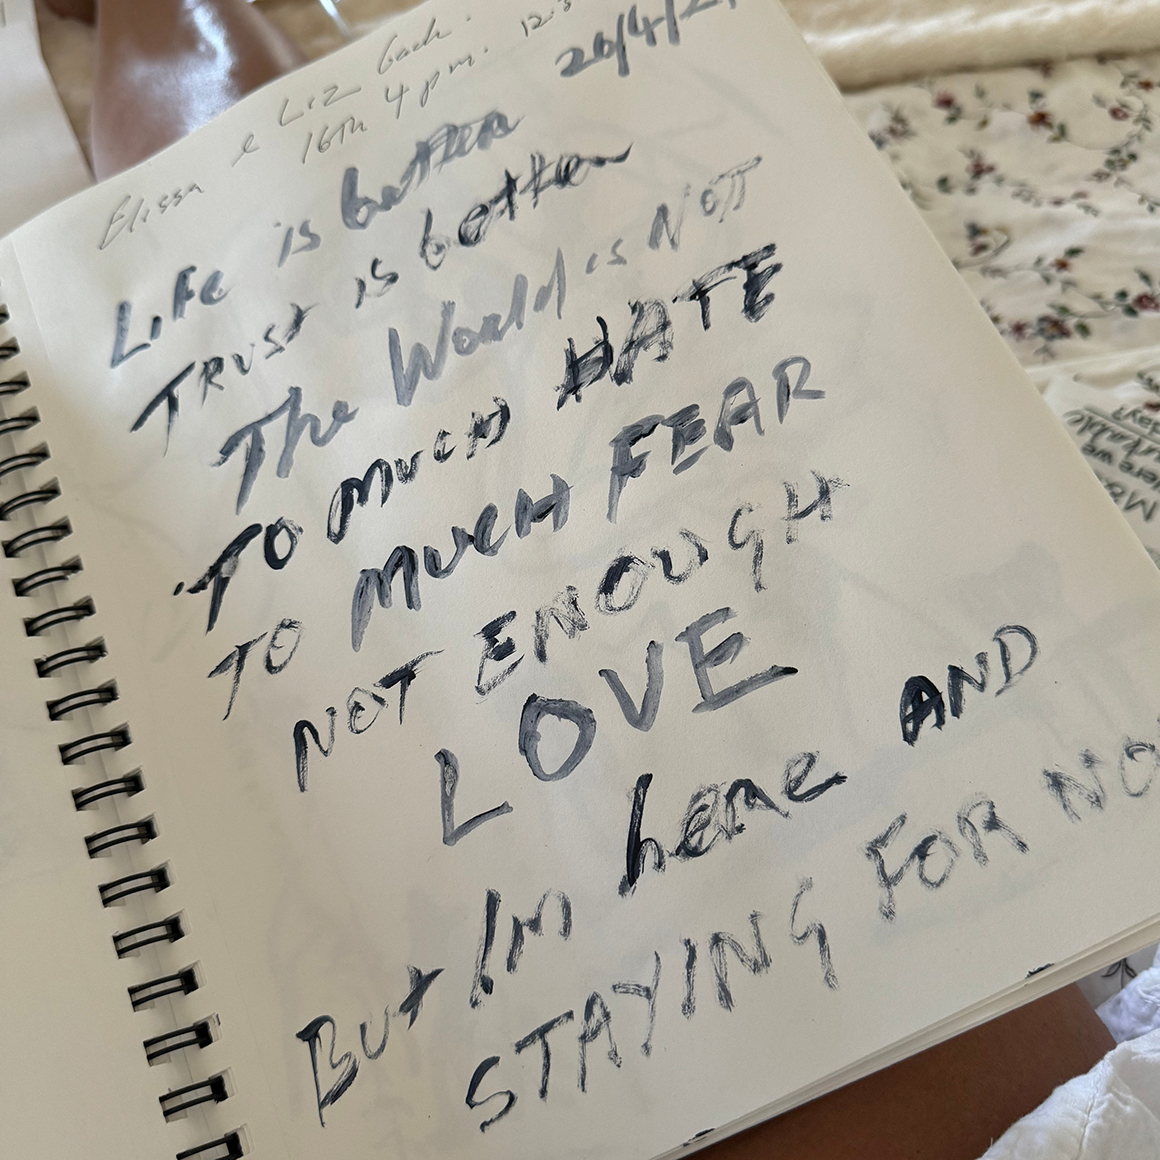 Elissa & Liz back.
16th 4pm. 12.3
26/4/2
Life is better
TRUST is better
The World is NOT
TO MUCH HATE
TO MUCH FEAR
NOT ENOUGH
LOVE
But Im here AND
STAYING FOR NO